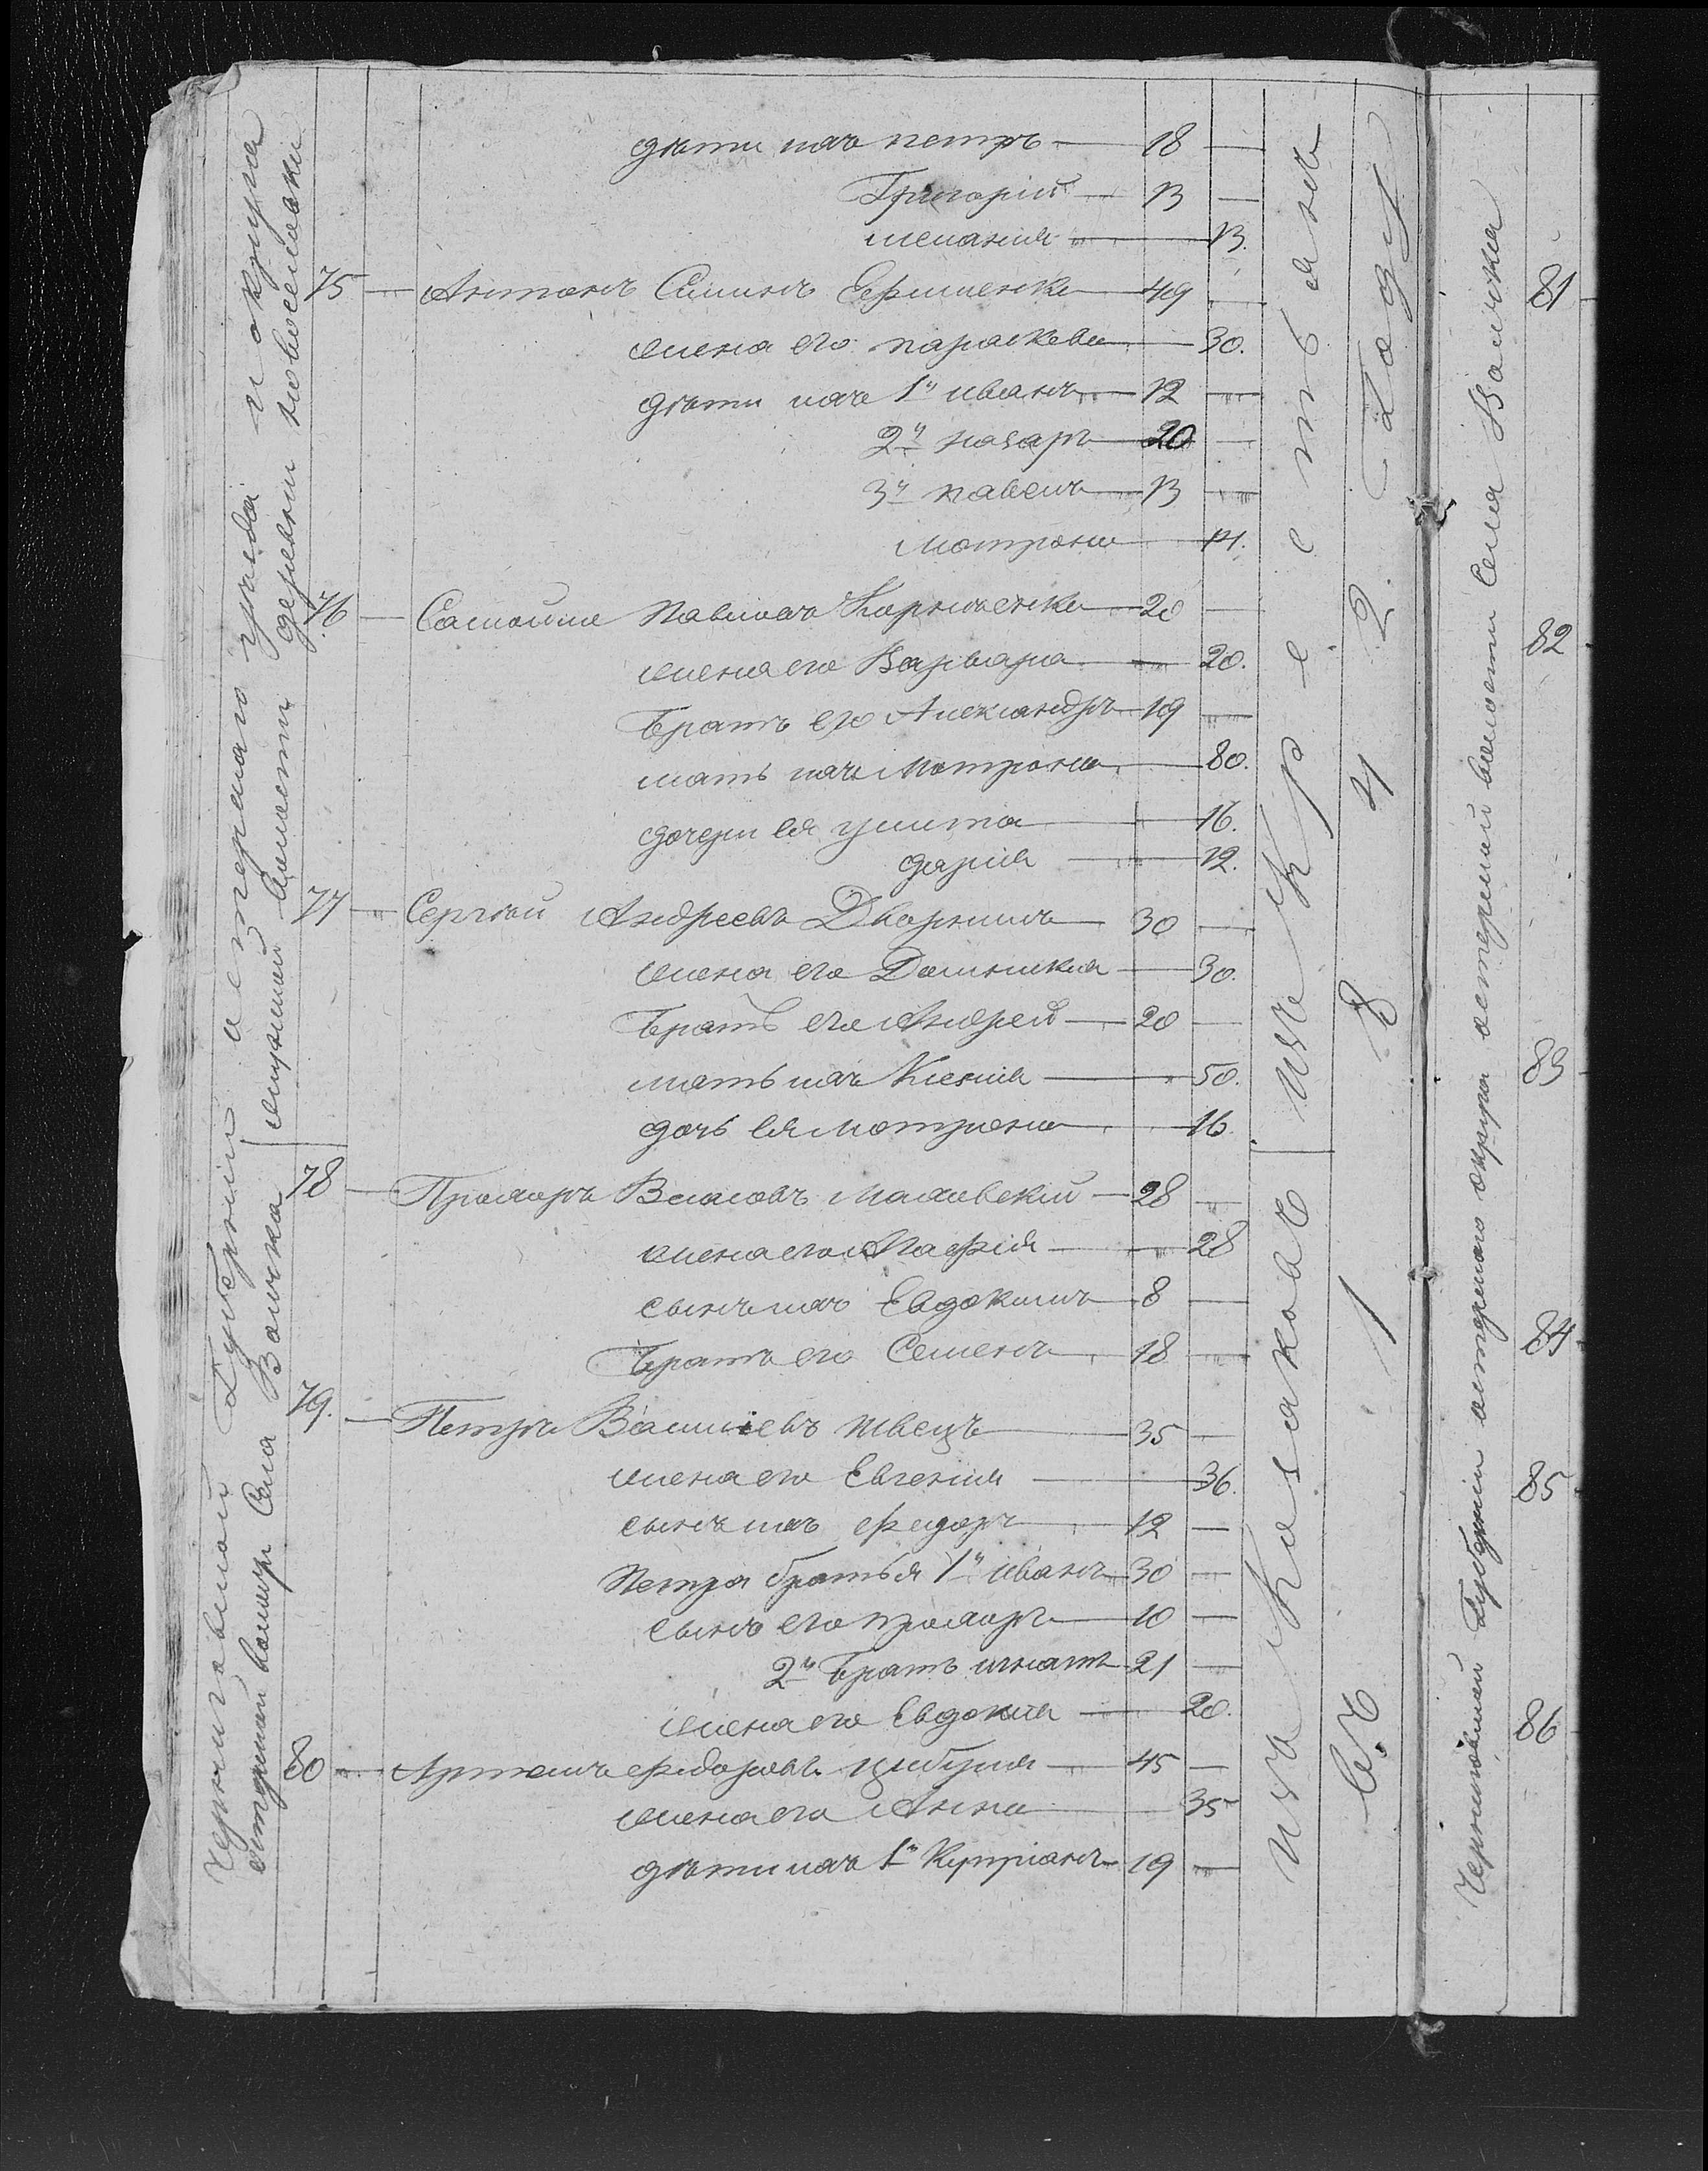 Черниговской Губерніи остерскаго уѣзда и округа
остерской волости Села Волчка
деревни новоселовки
дѣти ихъ петръ — 18 —
Григорій — 13 —
меланія — 13.
75 — Антонъ Еерименко — 49 —
жена его параскева — 30.
дѣти ихъ 1й иванъ — 12 —
2й назаръ — 20 —
3й павелъ — 13 —
Мотрона — 14.
76 — Самойло Павловъ Корніенко — 20 —
жена его Варвара — 20.
Братъ его Александръ — 19 —
мать ихъ Мотрона — 80.
дочери ея улита — 16.
дарія — 12.
77 — Сергѣй Андреевъ — 30 —
жена его Домникія — 30.
Братъ его Андрей — 20 —
мать ихъ Ксенія — 50.
дочь ея мотрона — 16.
78 — Прохоръ Власовъ — 28 —
жена его Агафія — 28
сынъ ихъ Евдокимъ — 8 —
Братъ его Семенъ — 18 —
79. — Петръ Василіевъ швецъ — 35 —
жена его Евгенія — 36.
сынъ ихъ федоръ — 12 —
Петра братья 1й иванъ — 30 —
сынъ его прохоръ — 10 —
2й Братъ игнатъ — 21 —
жена его Евдокія — 20.
80 — Артемъ федоровъ цибуля — 45 —
жена его Анна — 35
дѣти ихъ 1й Купріанъ — 19 —
изъ Козаковъ
изъ Крестьянъ
Въ 1 8 4 2 Году
Черниговской Губерніи остерскаго округа остерской волости Села Волчка
81
82
83
84
85
86